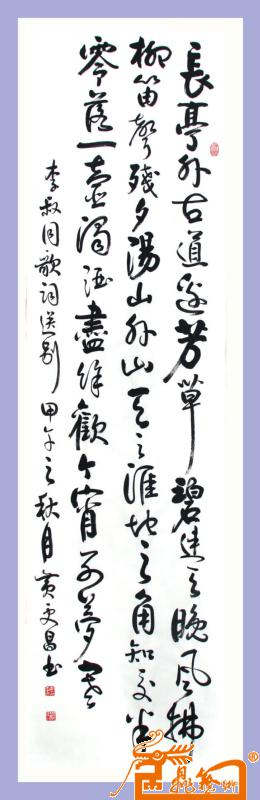 長亭外古道邊芳草碧連天晚風拂
柳笛聲殘夕陽山外山天之涯地之角知交半
零落一壺濁酒盡餘歡今宵別夢寒
李叔同歌詞送别 甲午之秋月 黄更昌书